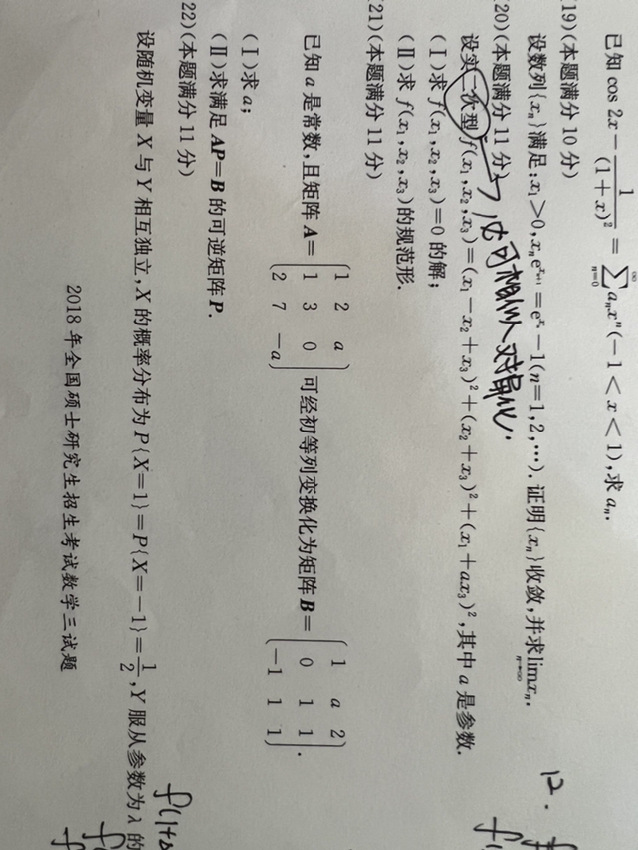 已知 cos 2x − 1/(1+x)² = ∑_{n=0}^{∞} aₙxⁿ(−1<x<1),求 aₙ.
19)(本题满分 10 分)
设数列{xₙ}满足:x₁>0,xₙe^{xₙ₊₁}=e^{xₙ}−1(n=1,2,…). 证明{xₙ}收敛,并求 lim_{n→∞} xₙ.
20)(本题满分 11 分)
必可相似对角化.
设实二次型 f(x₁,x₂,x₃)=(x₁−x₂+x₃)²+(x₂+x₃)²+(x₁+ax₃)²,其中 a 是参数.
(Ⅰ)求 f(x₁,x₂,x₃)=0 的解;
(Ⅱ)求 f(x₁,x₂,x₃)的规范形.
21)(本题满分 11 分)
已知 a 是常数,且矩阵 A= (1 2 a; 1 3 0; 2 7 −a) 可经初等列变换化为矩阵 B= (1 a 2; 0 1 1; −1 1 1).
(Ⅰ)求 a;
(Ⅱ)求满足 AP=B 的可逆矩阵 P.
22)(本题满分 11 分)
设随机变量 X 与 Y 相互独立,X 的概率分布为 P{X=1}=P{X=−1}=1/2,Y 服从参数为 λ 的
2018 年全国硕士研究生招生考试数学三试题
12.